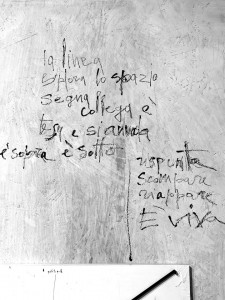 la linea
esplora lo spazio
segna
collega è
tesa e si annoda
è sopra è sotto
spunta
scompare
riappare
È viva